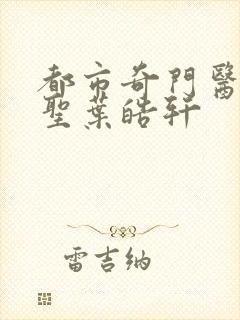 都市奇門醫
聖葉皓軒
雷吉納